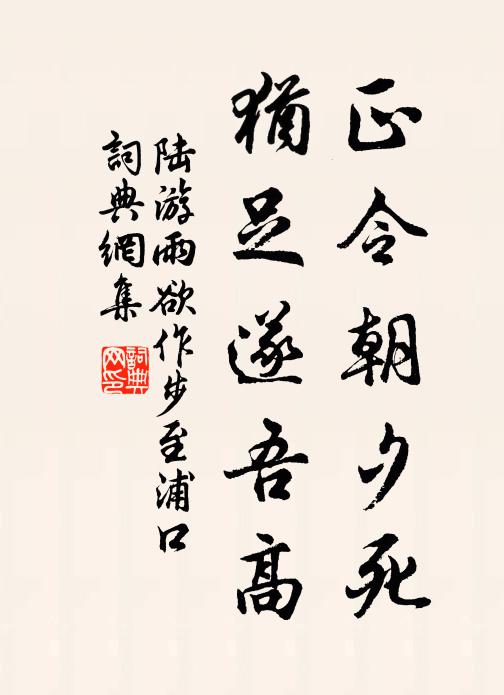 正令朝夕死
猶足遂吾高
陆游雨欲作步至浦口
詞典網集
詞典網印